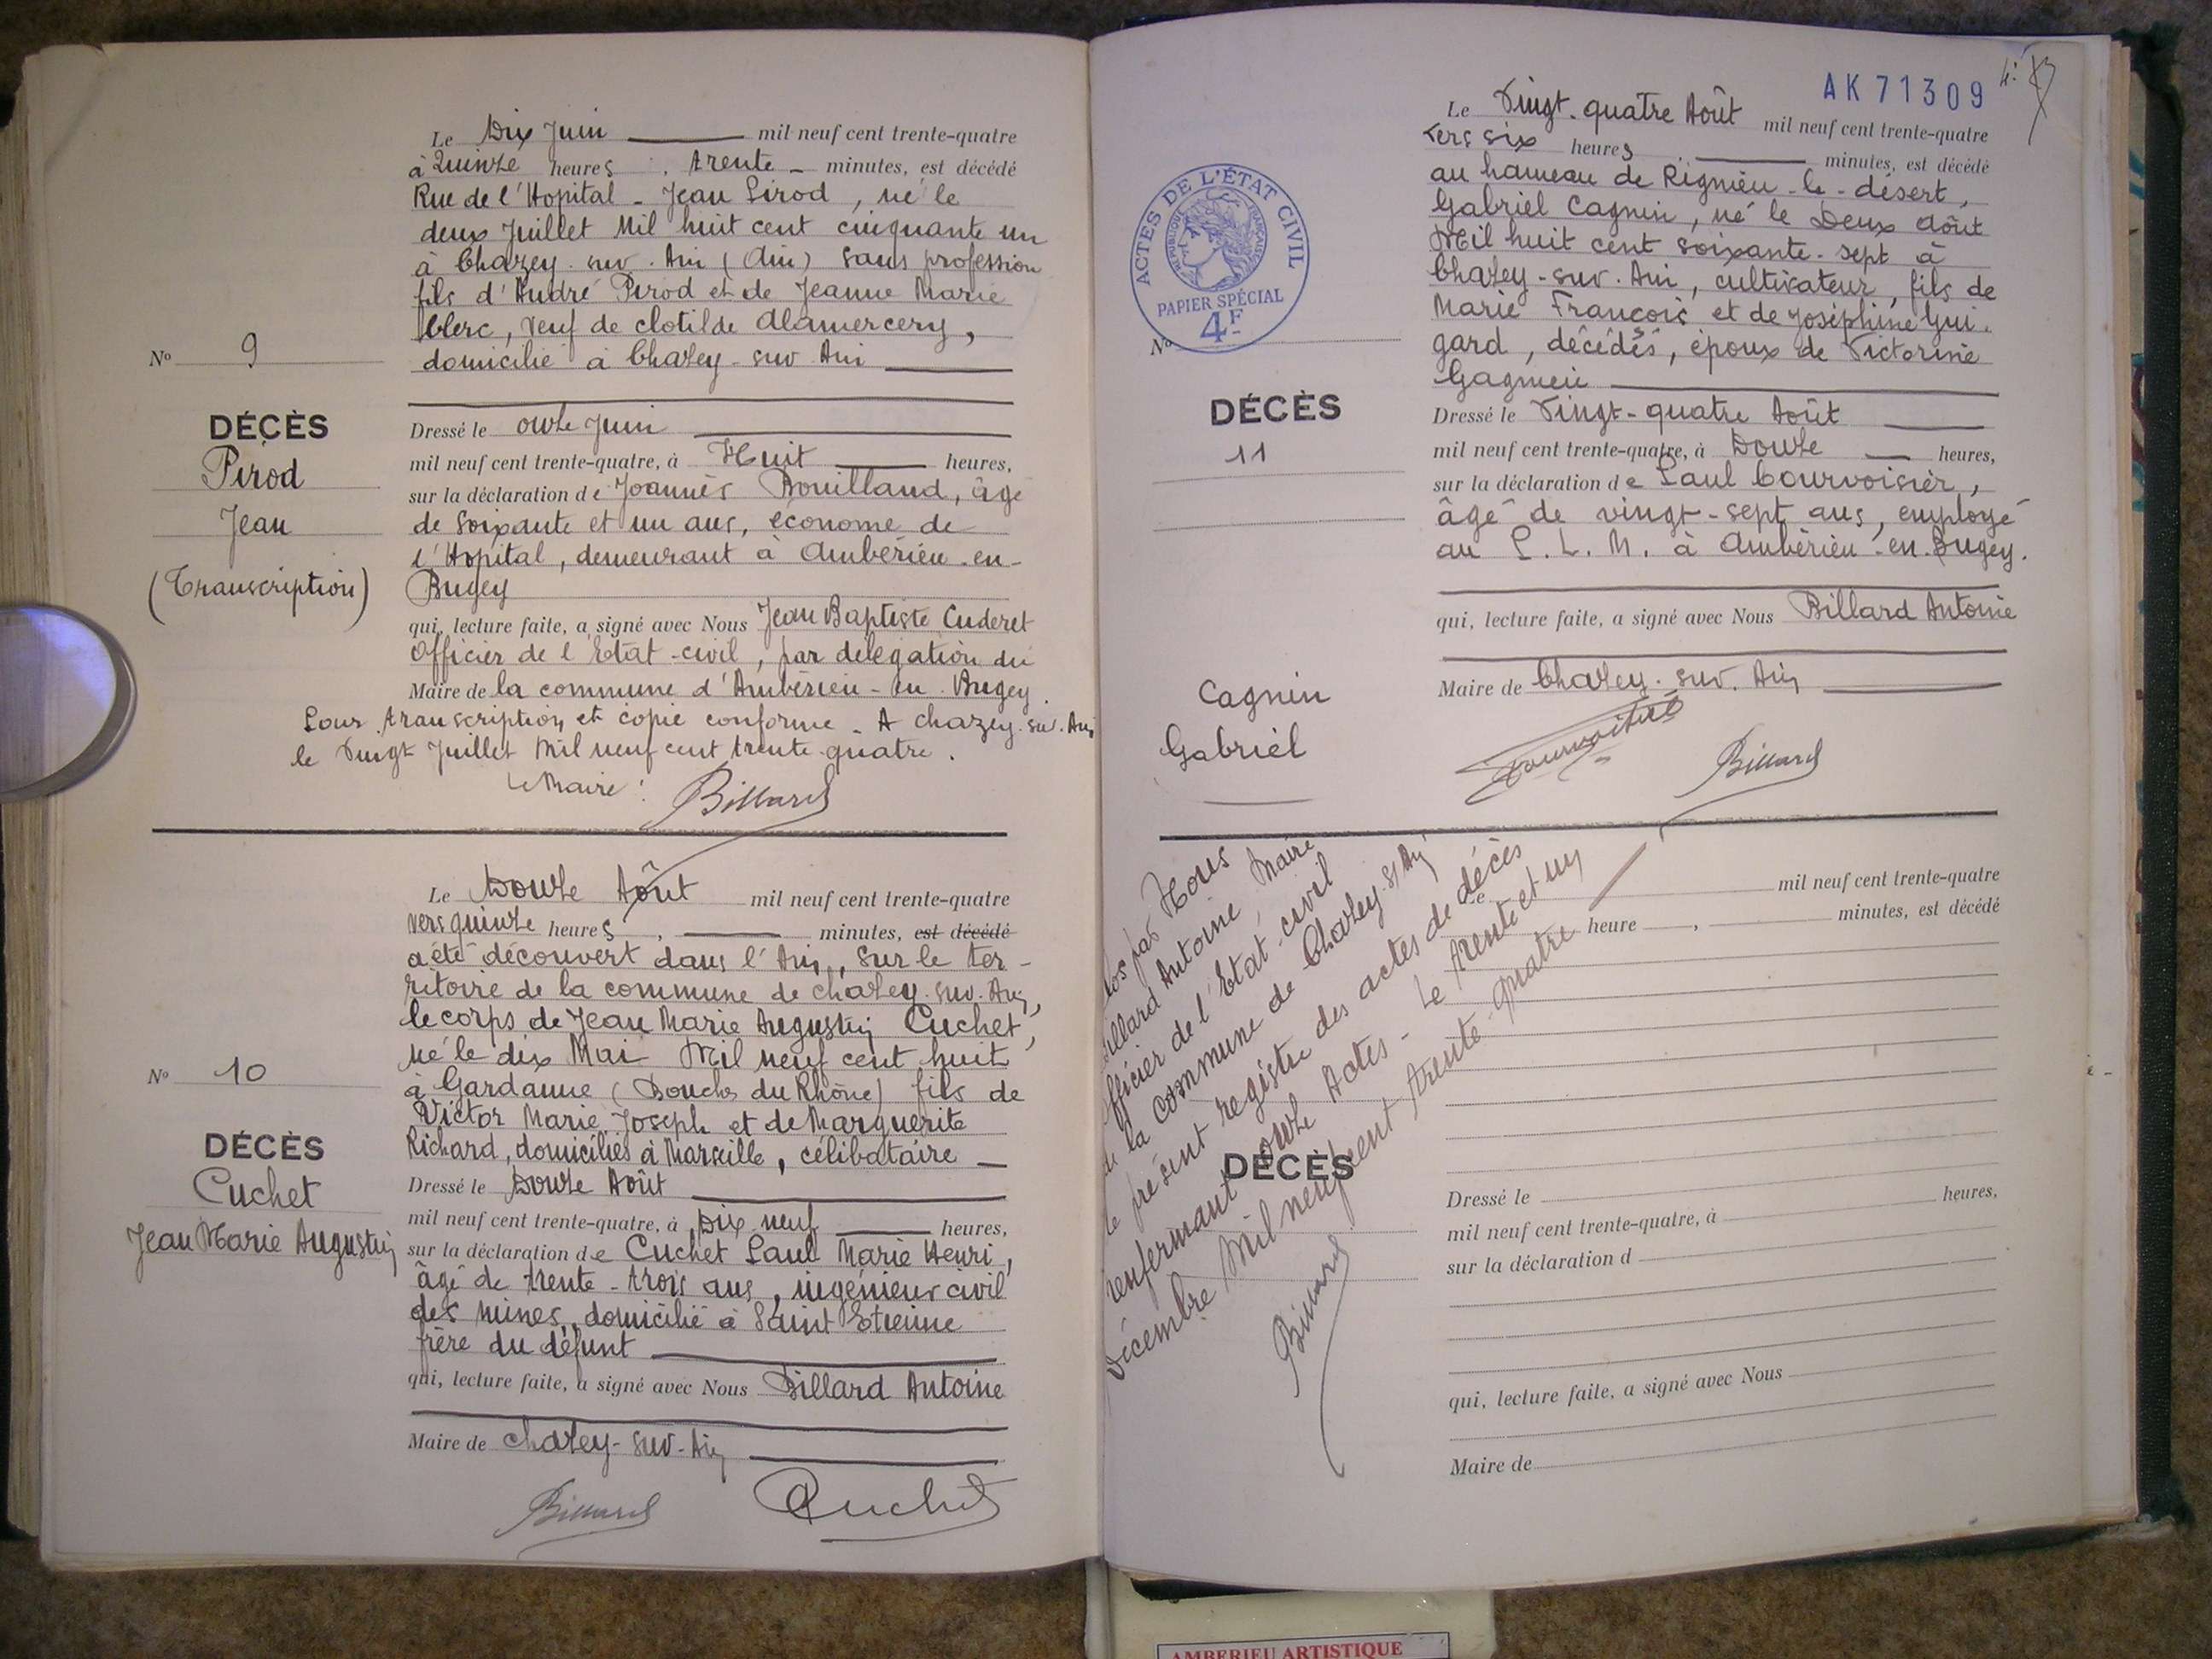 Le Dix Juin mil neuf cent trente-quatre
à Quinze heures, trente minutes, est décédé
Rue de l'Hopital - Jean Pirod, né le
deux Juillet Mil huit cent cinquante un
à Chazey-sur-Ain (Ain) sans profession
fils d'André Pirod et de Jeanne Marie
Clerc, veuf de Clotilde Alamercery,
domicilié à Chazey-sur Ain
N° 9
DÉCÈS
Pirod
Jean
(Transcription)
Dressé le onze Juin
mil neuf cent trente-quatre, à Huit heures,
sur la déclaration de Joannès Bouilland, âgé
de soixante et un ans, économe de
l'Hopital, demeurant à Ambérieu-en-
Bugey
qui, lecture faite, a signé avec Nous Jean Baptiste Cuderet
Officier de l'Etat-civil, par délégation du
Maire de la commune d'Ambérieu-en-Bugey.
Pour transcription et copie conforme - A chazey-sur-Ain
le Vingt Juillet Mil neuf cent trente-quatre.
Le Maire :
Billard
Le Douze Août mil neuf cent trente-quatre
vers quinze heures, minutes, est décédé
a été découvert dans l'Ain, sur le ter-
ritoire de la commune de chazey-sur-Ain,
le corps de Jean Marie Augustin Cuchet,
né le dix Mai Mil neuf cent huit
à Gardanne (Bouches du Rhône) fils de
Victor Marie Joseph et de Marguerite
Richard, domiciliés à Marseille, célibataire
N° 10
DÉCÈS
Cuchet
Jean Marie Augustin
Dressé le Douze Août
mil neuf cent trente-quatre, à Dix neuf heures,
sur la déclaration de Cuchet Paul Marie Henri,
âgé de trente-trois ans, ingénieur civil
des mines, domicilié à Saint Etienne
frère du défunt
qui, lecture faite, a signé avec Nous Billard Antoine
Maire de chazey-sur-Ain
Billard
Cuchet
AK71309
Le Vingt-quatre Août mil neuf cent trente-quatre
vers six heures minutes, est décédé
au hameau de Rignieu-le-désert,
Gabriel Cagnin, né le Deux Août
Mil huit cent soixante-sept à
Chazey-sur-Ain, cultivateur, fils de
Marie François et de Joséphine Gui-
gard, décédés, époux de Victorine
Gagneux
ACTES DE L'ÉTAT CIVIL
RÉPUBLIQUE FRANÇAISE
PAPIER SPÉCIAL
4F
N°
DÉCÈS
11
Cagnin
Gabriel
Dressé le Vingt-quatre Août
mil neuf cent trente-quatre, à Douze heures,
sur la déclaration de Paul Courvoisier,
âgé de vingt-sept ans, employé
au P.L.M. à Ambérieu-en-Bugey.
qui, lecture faite, a signé avec Nous Billard Antoine
Maire de Chazey-sur-Ain
Courvoisier
Billard
los par Nous
illard Antoine, Maire
fficier de l'Etat-civil
de la commune de Chazey-s/Ain
le présent registre des actes de décès
renfermant onze Actes - Le trente et un
Décembre Mil neuf cent trente-quatre
Billard
Le mil neuf cent trente-quatre
heure, minutes, est décédé
DÉCÈS
Dressé le
mil neuf cent trente-quatre, à heures,
sur la déclaration d
qui, lecture faite, a signé avec Nous
Maire de
AMBERIEU ARTISTIQUE